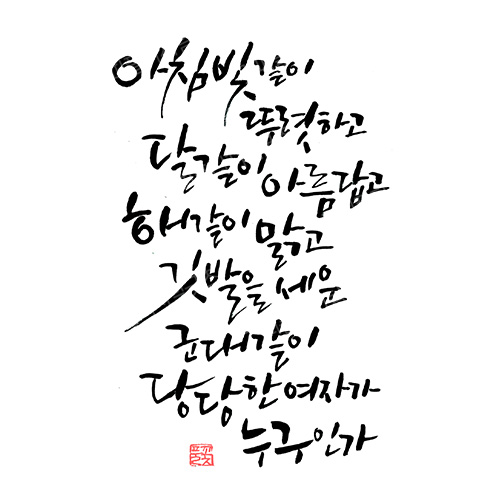 아침빛같이
뚜렷하고
달같이 아름답고
해같이 맑고
깃발을 세운
군대같이
당당한 여자가
누구인가